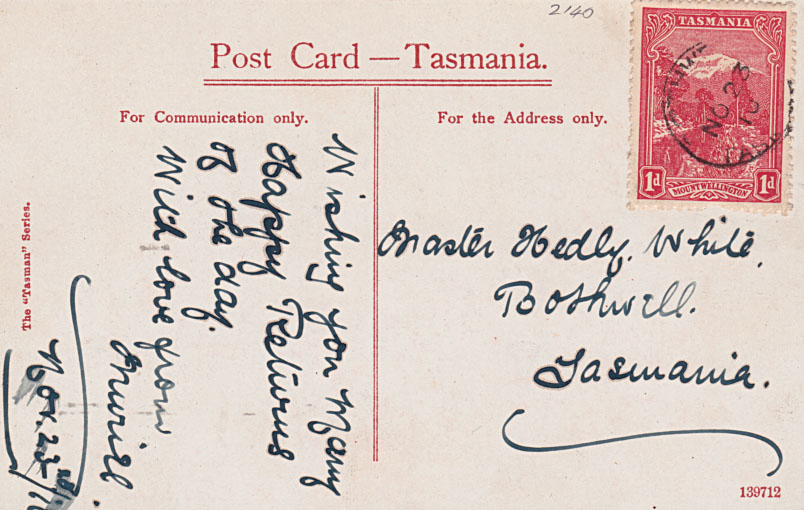 2140
Post Card — Tasmania.
For Communication only.
For the Address only.
TASMANIA
NO 23
10
TAS
1d
MOUNT WELLINGTON
1d
Wishing you Many
Happy Returns
of the day.
With love from
Muriel
Nov. 23rd/10
Master Hedly. White.
Bothwell.
Tasmania.
The "Tasman" Series.
139712